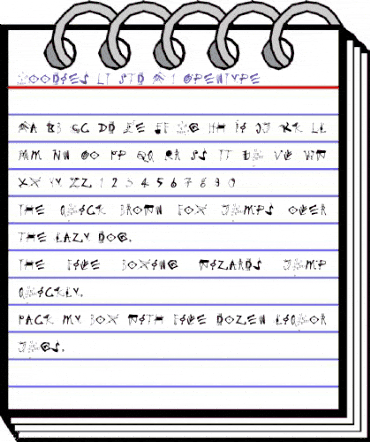 GOODIES LT STD A 1 OPENTYPE
AA BB CC DD EE FF GG HH II JJ KK LL
MM NN OO PP QQ RR SS TT UU VV WW
XX YY ZZ 1 2 3 4 5 6 7 8 9 0
THE QUICK BROWN FOX JUMPS OVER
THE LAZY DOG.
THE FIVE BOXING WIZARDS JUMP
QUICKLY.
PACK MY BOX WITH FIVE DOZEN LIQUOR
JUGS.